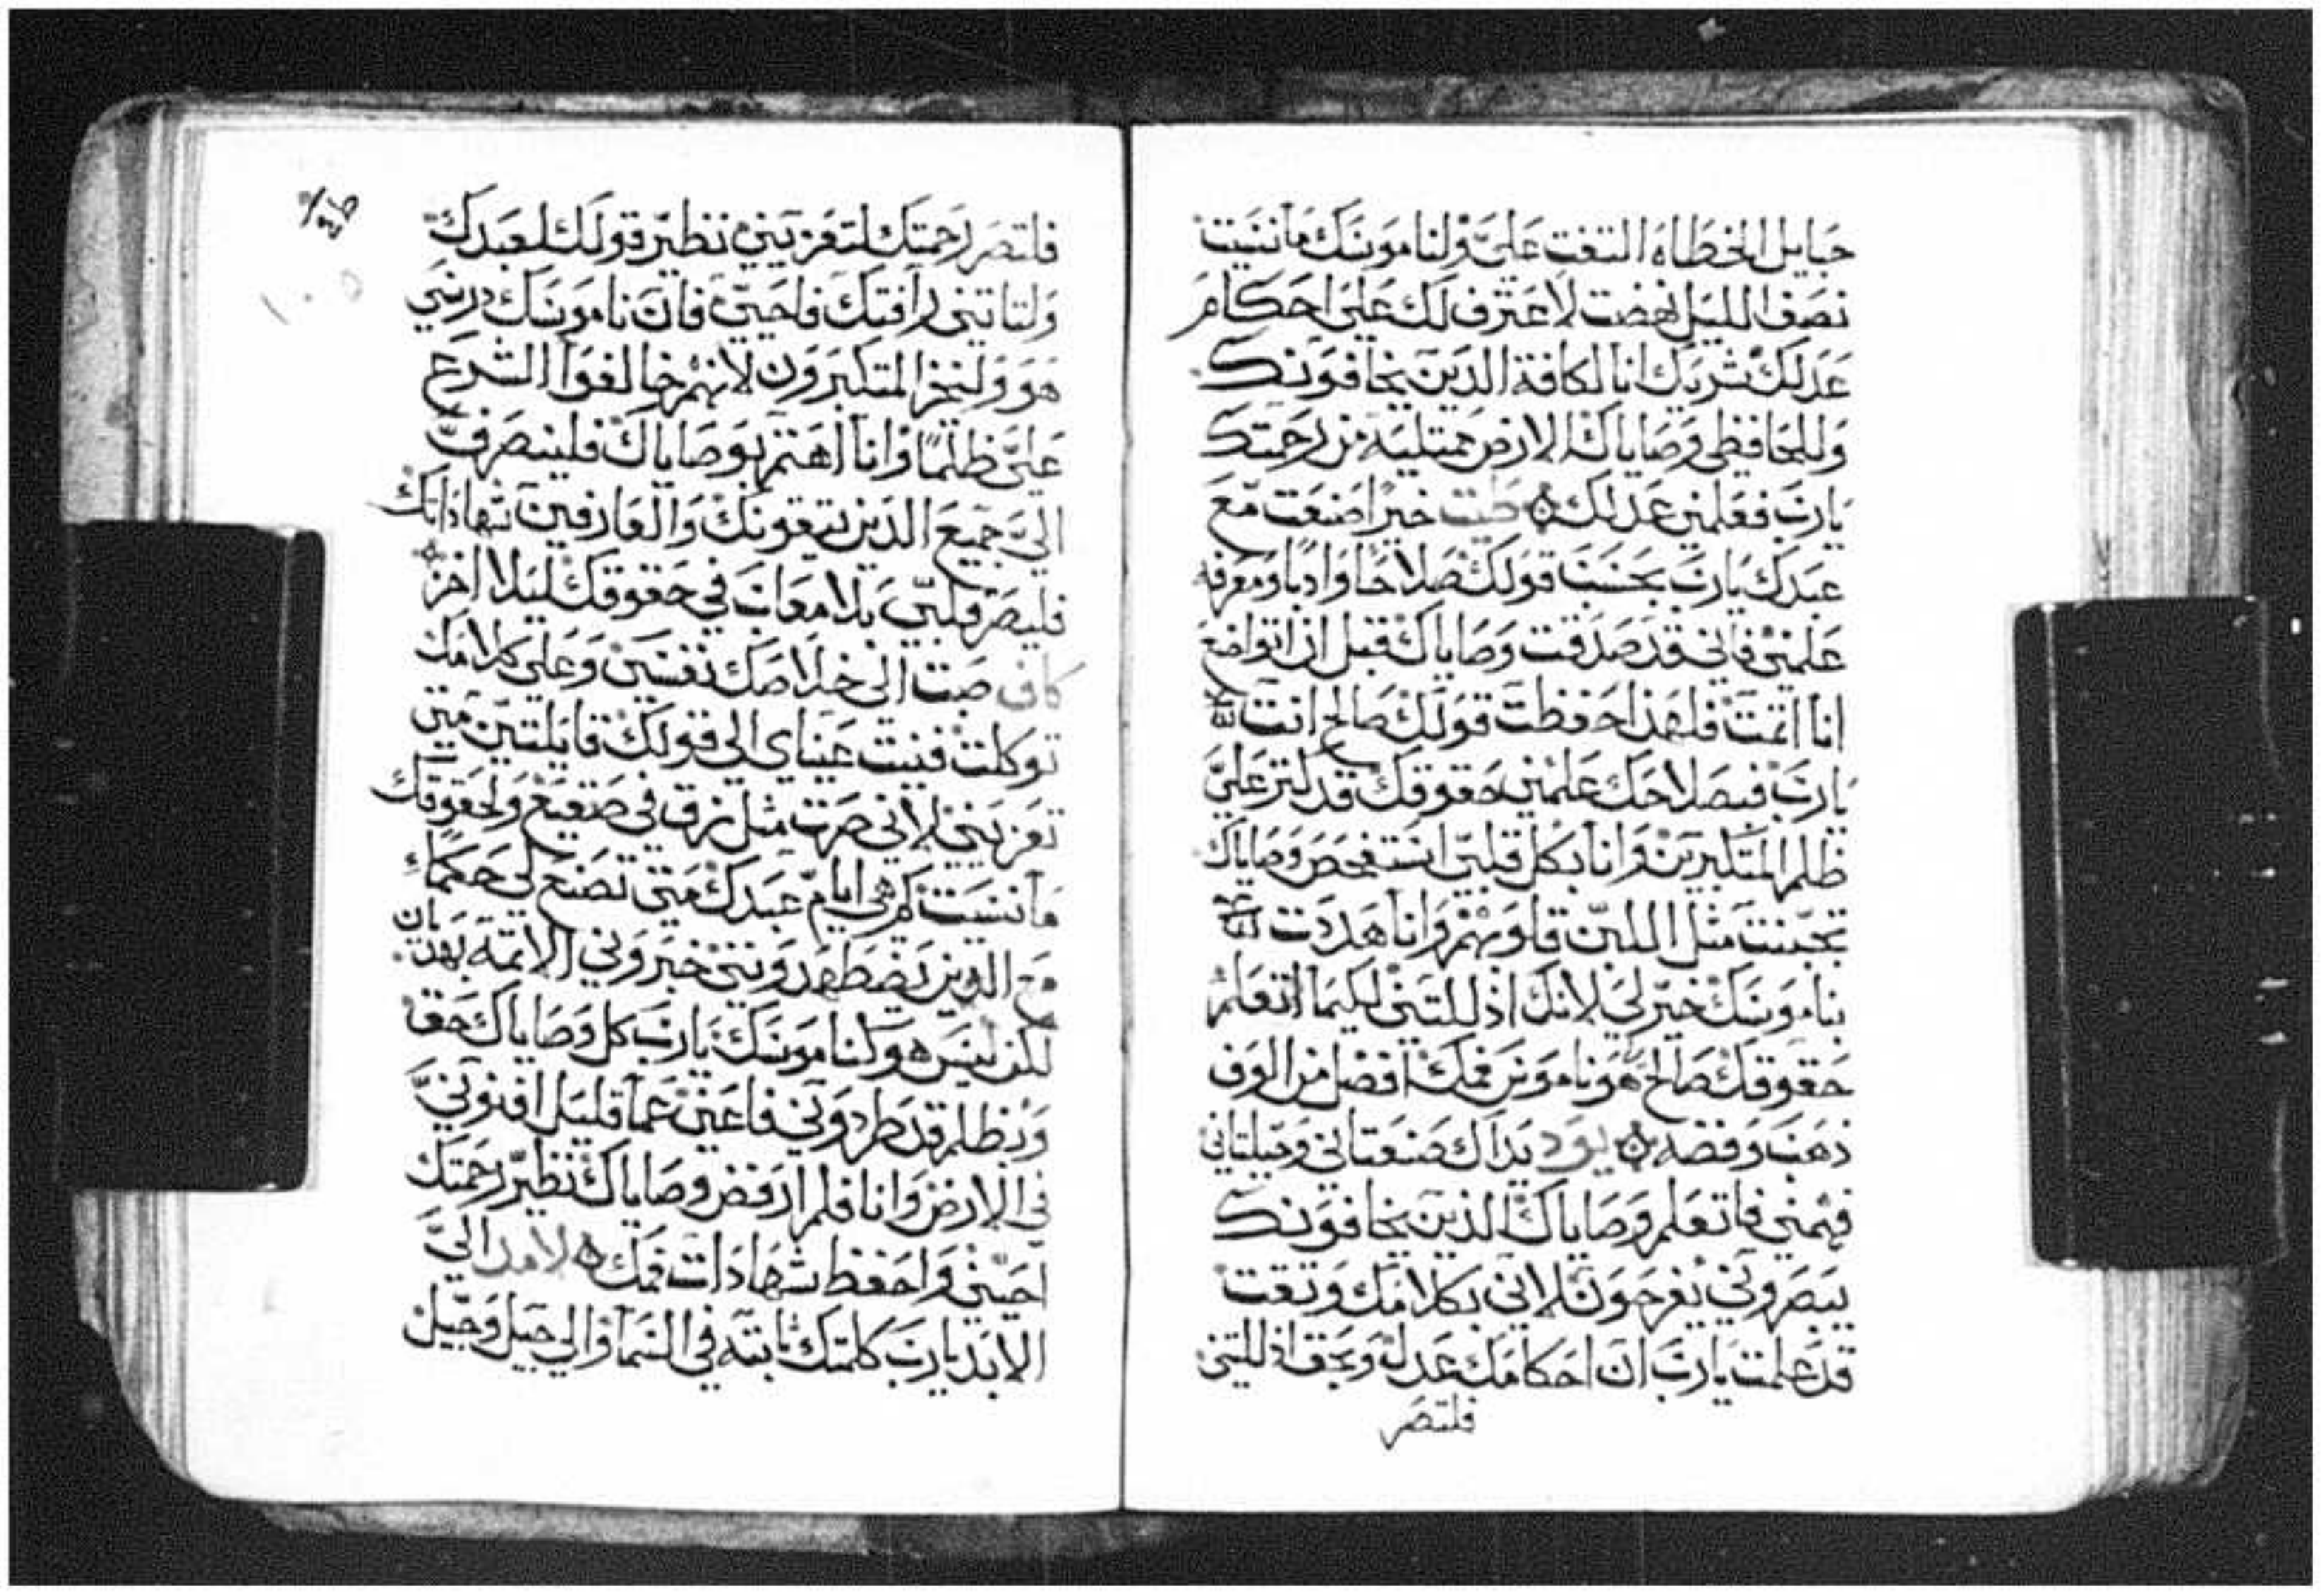 حبايل الخطاه التفت علي ولناموسك ما نسيت
نصف الليل نهضت لاعترف لك على احكام
عدلك شريك انا لكافة الذين يخافونك
وللحافظي وصاياك الارض ممتليه من رحمتك
يارب فعلمني عدلك طيت خيرا صنعت مع
عبدك يارب بحسب قولك صلاحا وادبا ومعرفه
علمني فاني قد صدقت وصاياك قبل ان اتواضع
انا اثمت فلهذا حفظت قولك صالح انت
يارب فبصلاحك علمني حقوقك قد كثر علي
ظلم المتكبرين وانا بكل قلبي استفحص وصاياك
تجبنت مثل اللبن قلوبهم وانا هددت
بناموسك خير لي لانك اذللتني لكيما اتعلم
حقوقك صالح هو ناموس فمك افضل من الوف
ذهب وفضه يود يداك صنعتاني وجبلتاني
فهمني فاتعلم وصاياك الذين يخافونك
يبصروني يفرحون لاني بكلامك وثقت
قد علمت يارب ان احكامك عدل وبحق اذللتني
فلتصر
فلتصر رحمتك لتعزيني نظير قولك لعبدك
ولتاتني رافتك فاحيى فان ناموسك درسي
هو وليخز المتكبرون لانهم خالفوا الشرع
علي ظلما وانا اهتم بوصاياك فلينصرف
الي جميع الذين يتقونك والعارفين شهاداتك
فليصر قلبي بلا معاب في حقوقك ليلا اخز
كاف صبت الى خلاصك نفسي وعلى كلامك
توكلت فنيت عيناي الى قولك قايلتين متى
تعزيني لاني صرت مثل زق في صقيع ولحقوقك
ما نسيت كم هي ايام عبدك متى تصنع لي حكما
مع الذين يضطهدونني خبروني الاثمة بهذيان
لكن ليس هو كناموسك يارب كل وصاياك حقا
وبظلم قد طردوني فاعني عما قليل افنوني
في الارض وانا فلم ارفض وصاياك نظير رحمتك
احيني واحفظ شهادات فمك لامد الي
الابد يارب كلمتك ثابته في السما والي جيل وجيل